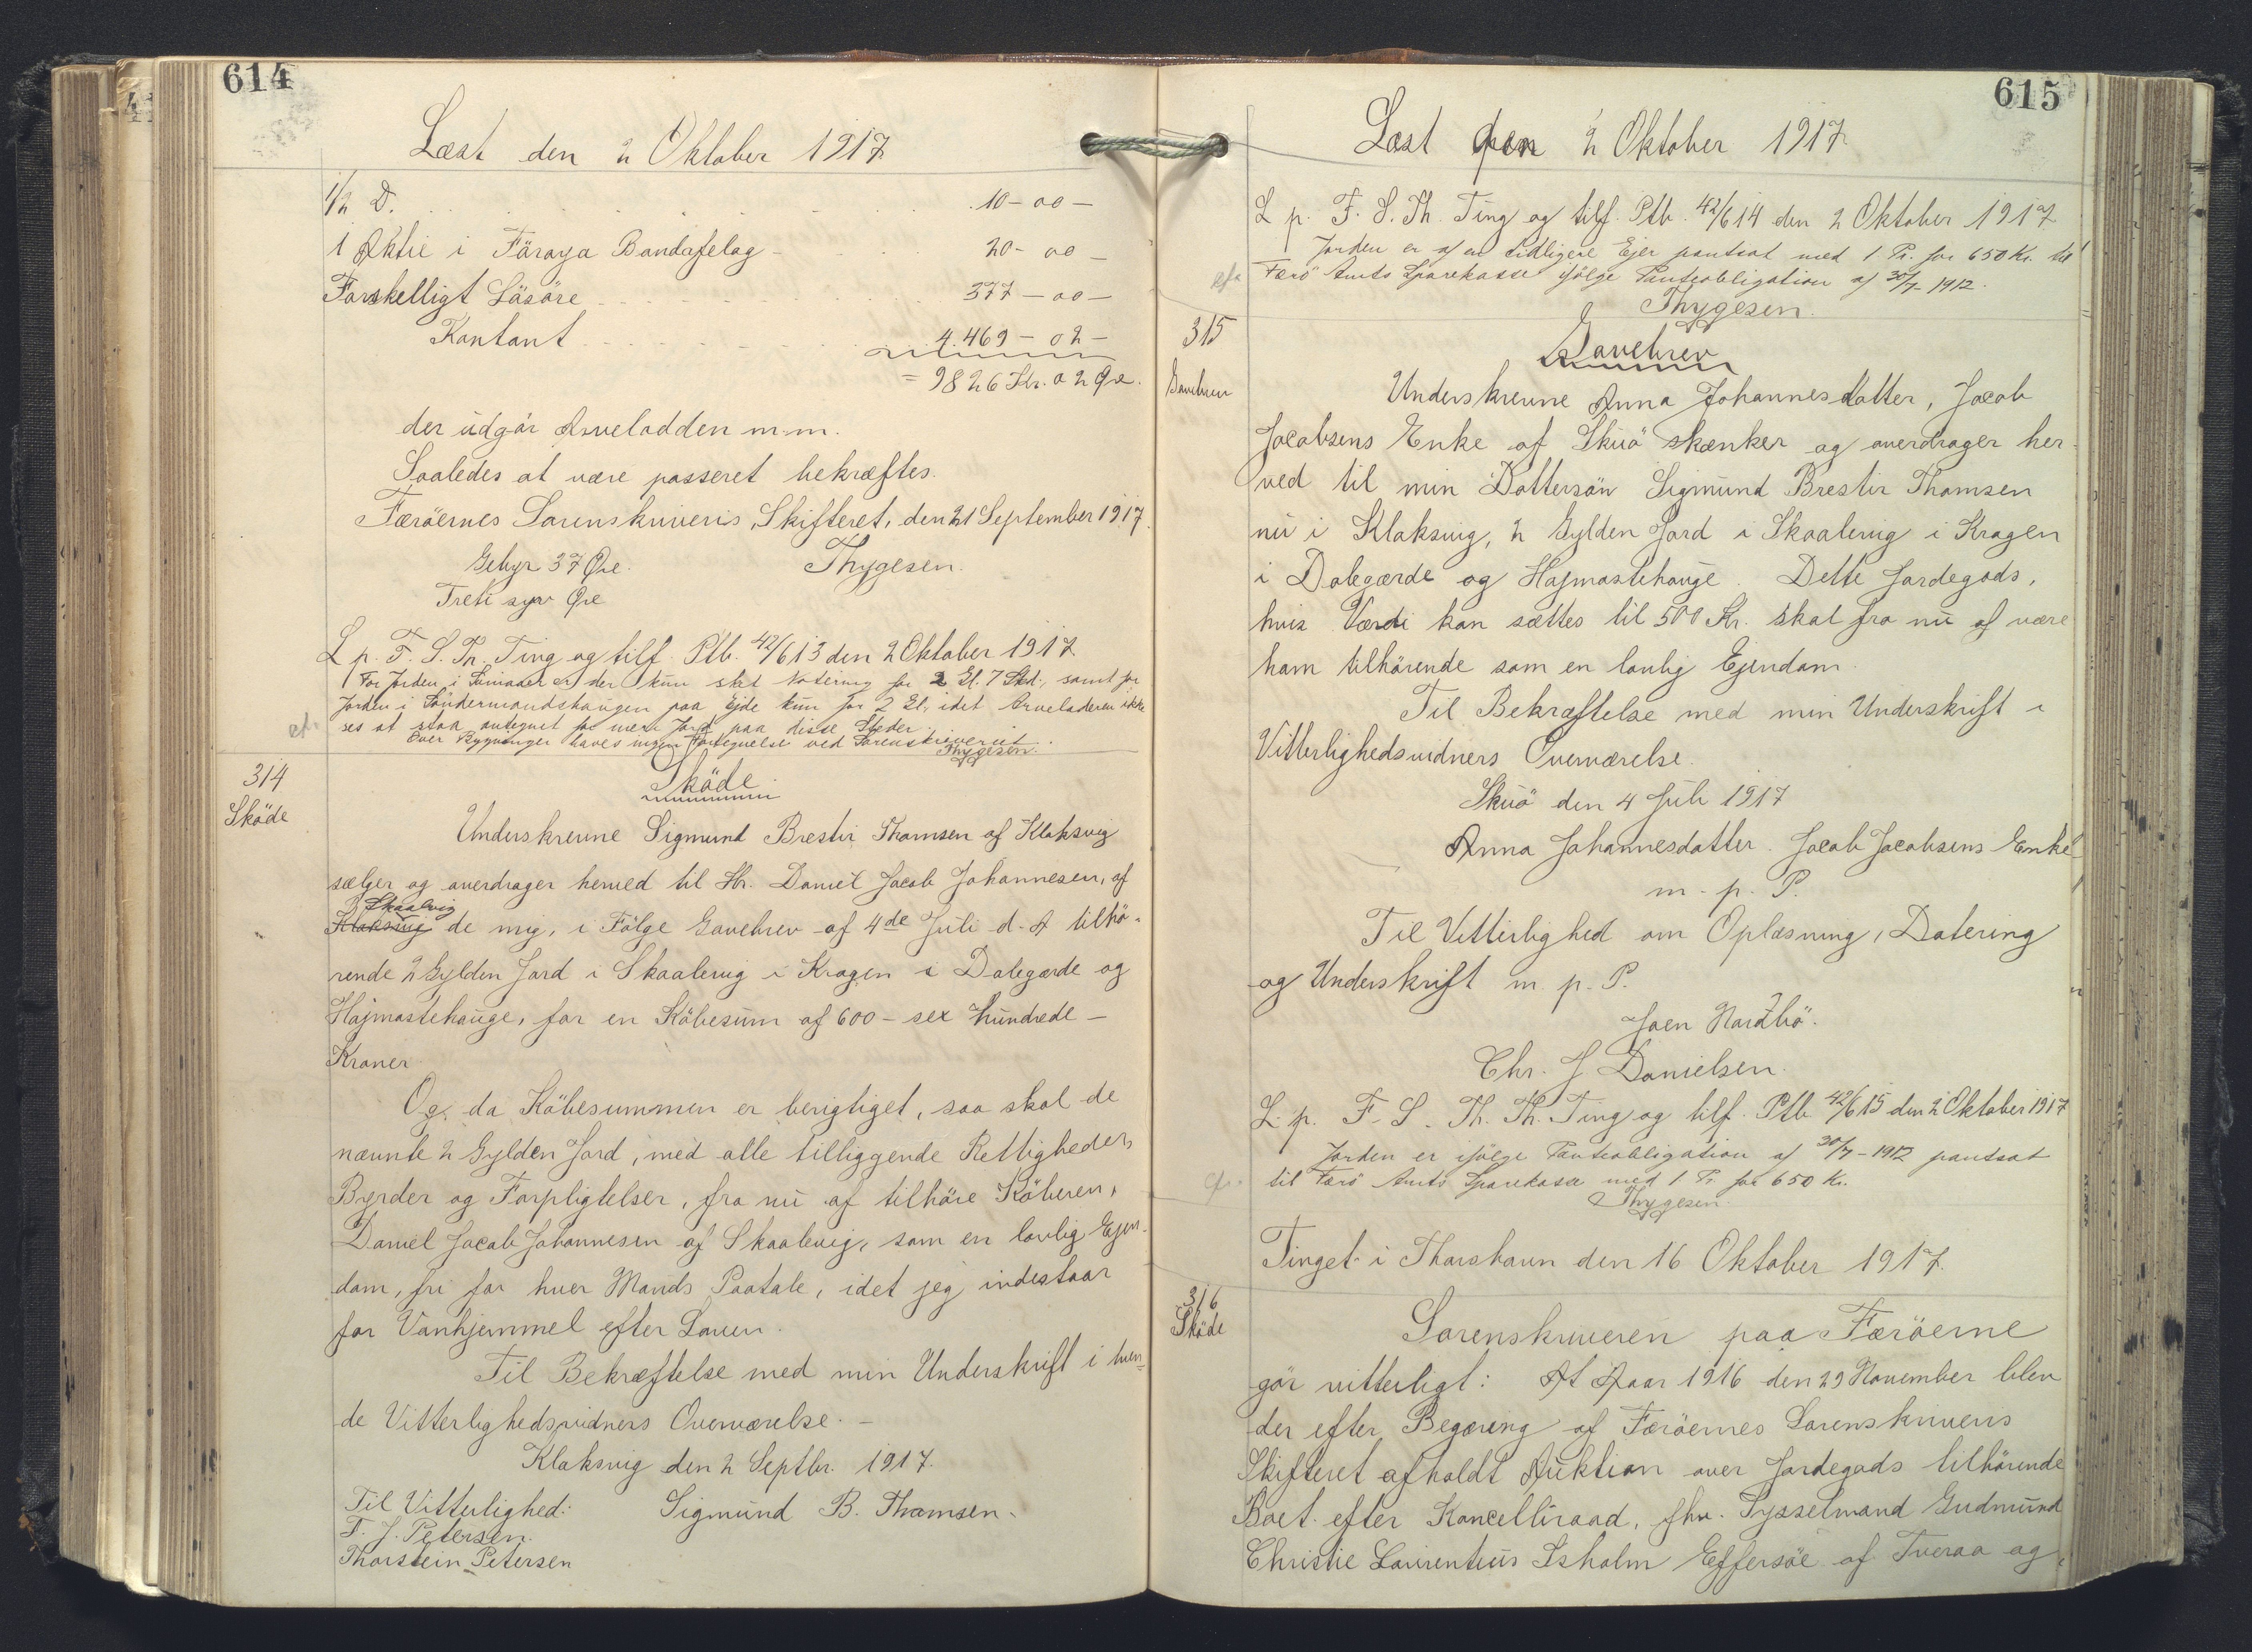 614
Læst den 2 Oktober 1917
1/2 D. 10-00-
1 Aktie i Föroya Bondafelag - 20-00-
Forskelligt Lösöre 377-00-
Kontant 4.469-02-
= 9826 Kr. 02 Øre.
der udgör Arvelodden m.m.
Saaledes at være passeret bekræftes.
Færöernes Sorenskriveris Skifteret, den 21 September 1917.
Gebyr 37 Øre. Thygesen.
Treti syv Øre
L p. F. S. Th. Ting og tilf. Ptb. 42/613 den 2 Oktober 1917.
For Jorden i er der kun sket Notering for 2 Gl. 7 Skd., samt for
Jorden i Söndermandshaugen paa Ejde kun for 2 Gl., idet Arveladeren ikke
ses at staa antegnet for mere Jord paa disse Steder.
Over Bygninger haves ingen Fortegnelse ved Sorenskriveriet.
Thygesen.
314
Sköde
Sköde.
Underskrevne Sigmund Brestir Thomsen af Klaksvig
sælger og overdrager herved til Hr. Daniel Jacob Johannesen, af
Skaalevig
Klaksvig de mig, i Fölge Gavebrev af 4de Juli d. A tilhö-
rende 2 Gylden Jord i Skaalevig i Kragen i Dalegærde og
Højmastehauge, for en Köbesum af 600 - sex hundrede -
Kroner.
Og da Köbesummen er berigtiget, saa skal de
nævnte 2 Gylden Jord, med alle tilliggende Rettigheder,
Byrder og Forpligtelser, fra nu af tilhöre Köberen,
Daniel Jacob Johannesen af Skaalevig, som en lovlig Ejen-
dom, fri for hver Mands Paatale, idet jeg indestaar
for Vanhjemmel efter Loven.
Til Bekræftelse med min Underskrift i tven-
de Vitterlighedsvidners Overværelse. -
Klaksvig den 2 Septbr. 1917.
Til Vitterlighed: Sigmund B. Thomsen.
F. J. Petersen.
Thorstein Petersen
615
Læst den 2 Oktober 1917
L p. F. S. Th. Ting og tilf. Ptb. 42/614 den 2 Oktober 1917
Jorden er af en tidligere Ejer pantsat med 1 Pr. for 650 Kr. til
Færö Amts Sparekasse ifölge Panteobligation af 30/7-1912.
Thygesen.
315
Gavebrev
Gavebrev
Underskrevne Anna Johannesdatter, Jacob
Jacobsens Enke af Skuö skænker og overdrager her-
ved til min Dattersön Sigmund Brestir Thomsen
nu i Klaksvig, 2 Gylden Jord i Skaalevig i Kragen
i Dalegærde og Højmastehauge. Dette Jordegods,
hvis Værdi kan sættes til 500 Kr. skal fra nu af være
ham tilhörende som en lovlig Ejendom.
Til Bekræftelse med min Underskrift i
Vitterlighedsvidners Overværelse.
Skuö den 4 Juli 1917
Anna Johannesdatter. Jacob Jacobsens Enke
m. p. P.
Til Vitterlighed om Oplæsning, Datering
og Underskrift m. p. P.
Joen Hardbö.
Chr. J Danielsen.
L. p. F. S. Th. Th. Ting og tilf. Ptb 42/615 den 2 Oktober 1917
Jorden er ifölge Panteobligation af 30/7-1912 pantsat
til Færö Amts Sparekasse med 1 Pr for 650 Kr.
Thygesen
Tinget i Thorshavn den 16 Oktober 1917.
316
Sköde
Sorenskriveren paa Færöerne
gör vitterligt: At Aar 1916 den 29 November blev
der efter Begæring af Færöernes Sorenskriveris
Skifteret afholdt Auktion over Jordegods tilhörende
Boet efter Kancelliraad, fhv. Sysselmand Gudmund
Christie Laurentius Isholm Effersöe af Tveraa og